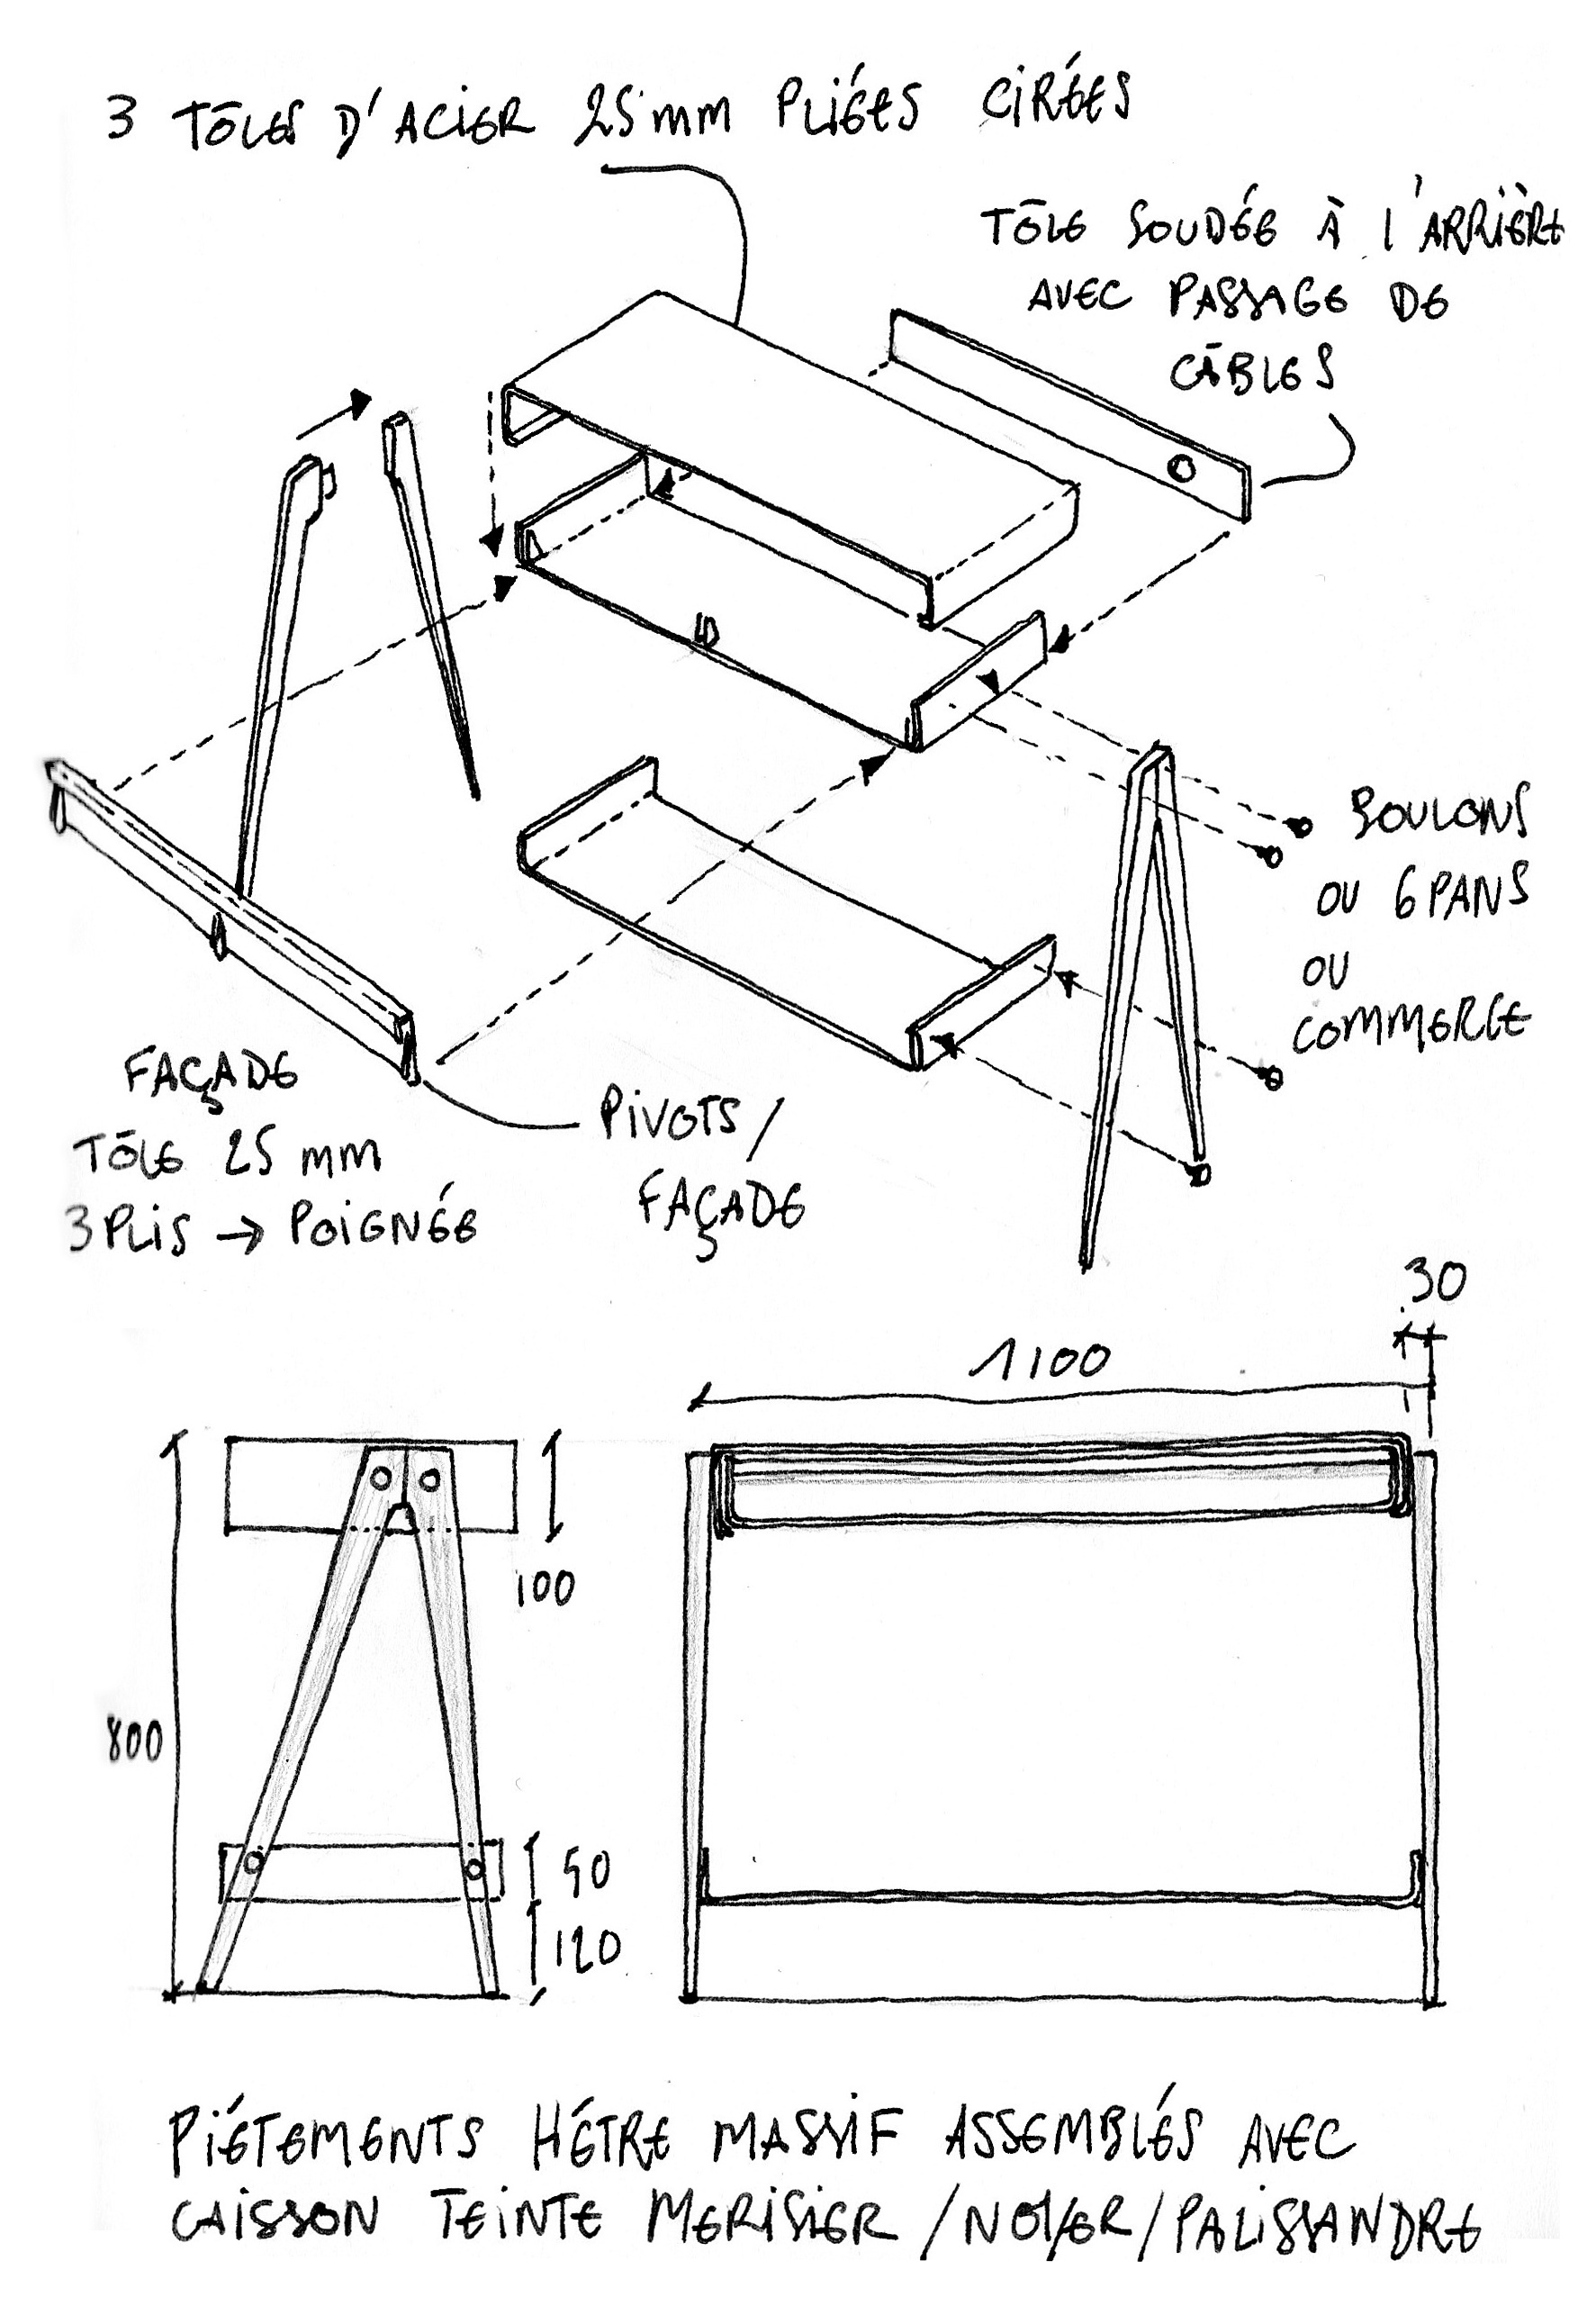 3 TÔLES D'ACIER 25 mm PLIÉES CIRÉES
TÔLE SOUDÉE À L'ARRIÈRE
AVEC PASSAGE DE
CÂBLES
BOULONS
OU 6 PANS
OU
COMMERCE
FAÇADE
TÔLE 25 mm
3 PLIS → POIGNÉE
PIVOTS /
FAÇADE
30
1100
100
800
50
120
PIÉTEMENTS HÊTRE MASSIF ASSEMBLÉS AVEC
CAISSON TEINTE MERISIER / NOYER / PALISSANDRE